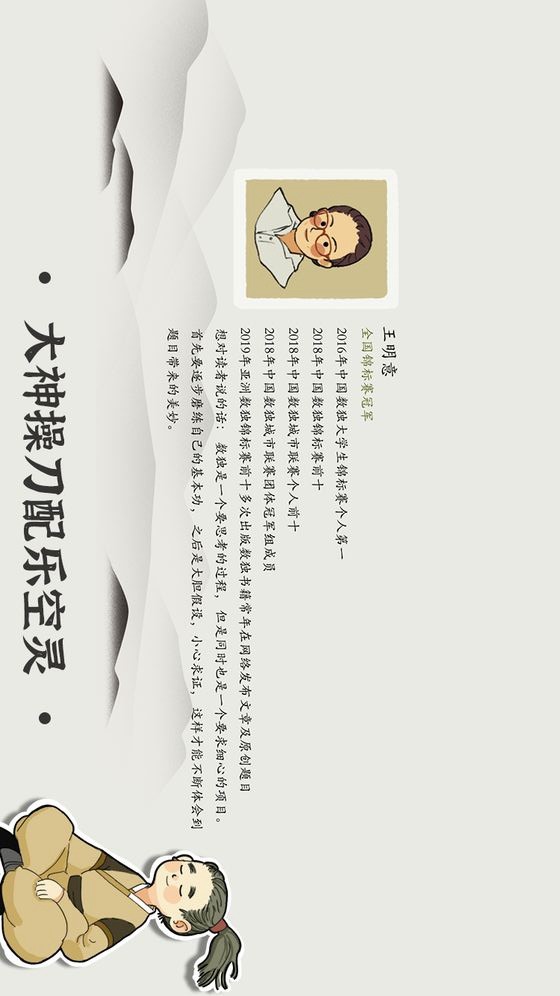 王明意
全国锦标赛冠军
2016年中国数独大学生锦标赛个人第一
2018年中国数独锦标赛前十
2018年中国数独城市联赛个人前十
2018年中国数独城市联赛团体冠军组成员
2019年亚洲数独锦标赛前十多次出版数独书籍常年在网络发布文章及原创题目
想对读者说的话：数独是一个要思考的过程，但是同时也是一个要求细心的项目。
首先要逐步磨练自己的基本功，之后是大胆假设，小心求证，这样才能不断体会到
题目带来的美妙。
·大神操刀配乐空灵·